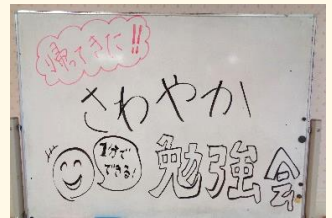 帰ってきた!!
さわやか
1分で
できる!
勉強会